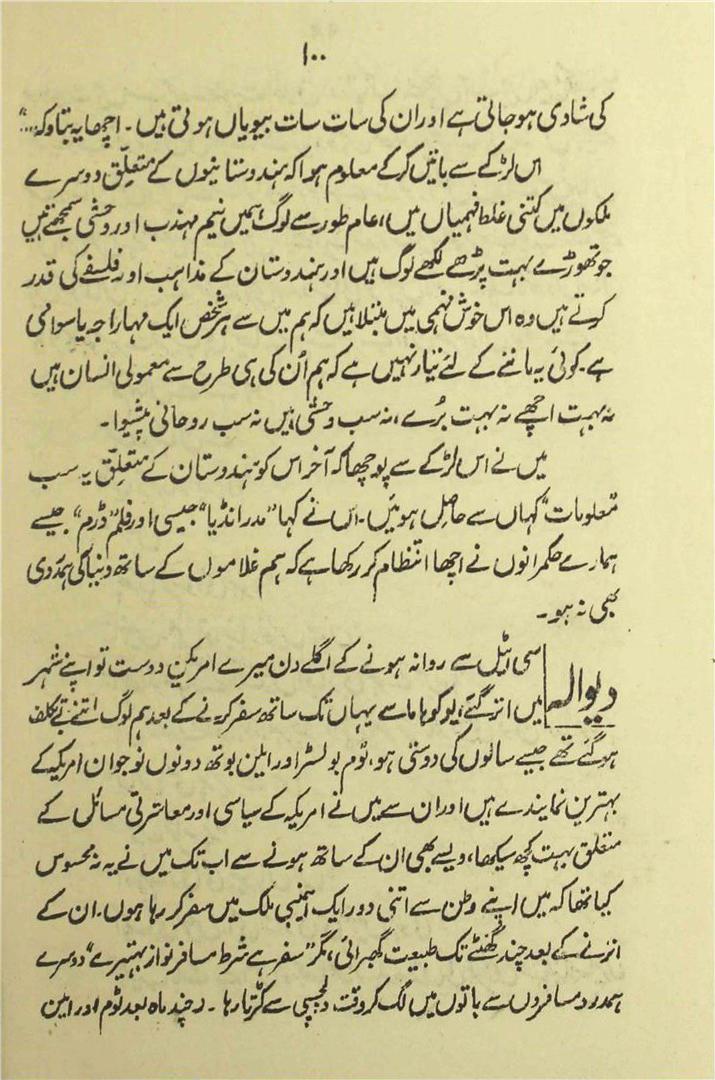 ۱۰۰
کی شادی ہو جاتی ہے اور ان کی سات سات بیویاں ہوتی ہیں۔ اچھا یہ بتاؤ کہ...“
اس لڑکے سے باتیں کرکے معلوم ہوا کہ ہندوستانیوں کے متعلّق دوسرے
ملکوں میں کتنی غلط فہمیاں ہیں، عام طور سے لوگ ہمیں نیم مہذب اور وحشی سمجھتے ہیں
جو تھوڑے بہت پڑھے لکھے لوگ ہیں اور ہندوستان کے مذاہب اور فلسفے کی قدر
کرتے ہیں وہ اس خوش فہمی میں مبتلا ہیں کہ ہم میں سے ہر شخص ایک مہاراجہ یا سوامی
ہے۔ کوئی یہ ماننے کے لئے تیار نہیں ہے کہ ہم اُن کی ہی طرح سے معمولی انسان ہیں
نہ بہت اچھے نہ بہت بُرے، نہ سب وحشی ہیں نہ سب روحانی پیشوا۔
میں نے اس لڑکے سے پوچھا کہ آخر اس کو ہندوستان کے متعلّق یہ سب
”معلومات“ کہاں سے حاصل ہوئیں۔ اس نے کہا ”مدر انڈیا“ جیسی اور فلم ”ڈرم“ جیسے
ہمارے حکمرانوں نے اچھا انتظام کر رکھا ہے کہ ہم غلاموں کے ساتھ دنیا کی ہمدردی
بھی نہ ہو۔
دیوالہ
سی ایٹل سے روانہ ہونے کے اگلے دن میرے امریکن دوست تو اپنے شہر
میں اتر گئے، یوکوہاما سے یہاں تک ساتھ سفر کرنے کے بعد ہم لوگ اتنے بے تکلف
ہو گئے تھے جیسے سالوں کی دوستی ہو، ٹوم بولسٹر اور ایلن بوتھ دونوں نوجوان امریکہ کے
بہترین نمایندے ہیں اور ان سے میں نے امریکہ کے سیاسی اور معاشرتی مسائل کے
متعلق بہت کچھ سیکھا، ویسے بھی ان کے ساتھ ہونے سے اب تک میں نے یہ نہ محسوس
کیا تھا کہ میں اپنے وطن سے اتنی دور ایک اجنبی ملک میں سفر کر رہا ہوں۔ ان کے
اترنے کے بعد چند گھنٹے تک طبیعت گھبرائی، مگر ”سفر ہے شرط مسافر نواز بہتیرے“ دوسرے
ہمدرد مسافروں سے باتوں میں لگ کر وقت دلچسپی سے کٹتا رہا۔ (چند ماہ بعد ٹوم اور ایلن